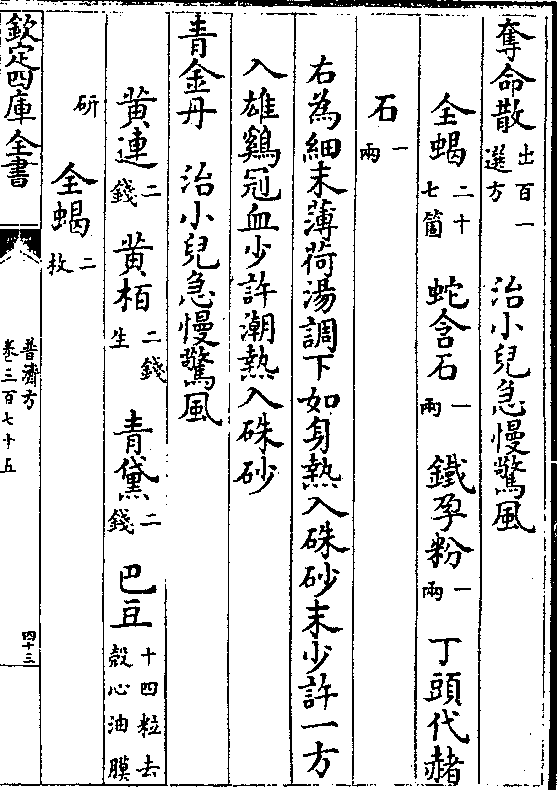 奪命散出百一選方　治小兒急慢驚風
全蝎二十七箇　蛇含石一兩　鐵孕粉一兩　丁頭代赭
石一兩
右為細末薄荷湯調下如身熱入硃砂末少許一方
入雄鷄冠血少許潮熱入硃砂
青金丹　治小兒急慢驚風
黄連二錢　黄栢二錢生　青黛二錢　巴豆十四粒去殻心油膜
研　全蝎二枚
欽定四庫全書
普濟方
卷三百七十五
四十三